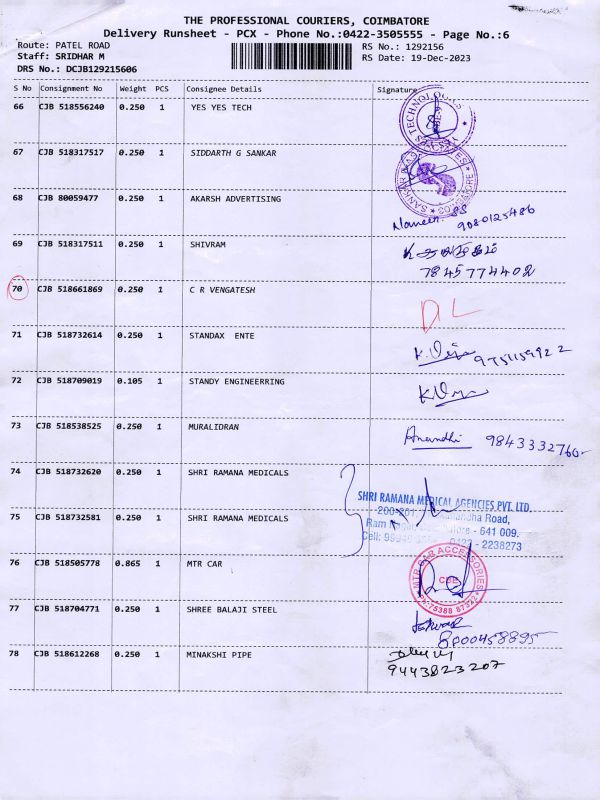 THE PROFESSIONAL COURIERS, COIMBATORE
Delivery Runsheet - PCX - Phone No.:0422-3505555 - Page No.:6
Route: PATEL ROAD RS No.: 1292156
Staff: SRIDHAR M RS Date: 19-Dec-2023
DRS No.: DCJB129215606
S No Consignment No Weight PCS Consignee Details Signature
66 CJB 518556240 0.250 1 YES YES TECH
67 CJB 518317517 0.250 1 SIDDARTH G SANKAR
68 CJB 80059477 0.250 1 AKARSH ADVERTISING
9080125486
69 CJB 518317511 0.250 1 SHIVRAM
7845774402
70 CJB 518661869 0.250 1 C R VENGATESH
DL
71 CJB 518732614 0.250 1 STANDAX ENTE
9751159922
72 CJB 518709019 0.105 1 STANDY ENGINEERRING
73 CJB 518538525 0.250 1 MURALIDRAN
Anandhi 9843332760
74 CJB 518732620 0.250 1 SHRI RAMANA MEDICALS
SHRI RAMANA MEDICAL AGENCIES PVT. LTD.
75 CJB 518732581 0.250 1 SHRI RAMANA MEDICALS
Road,
Ram - 641 009.
Cell: - 2238273
76 CJB 518505778 0.865 1 MTR CAR
MTR CAR ACCESSORIES
CBE
PH:75388 87322
77 CJB 518704771 0.250 1 SHREE BALAJI STEEL
8900458895
78 CJB 518612268 0.250 1 MINAKSHI PIPE
9443823207